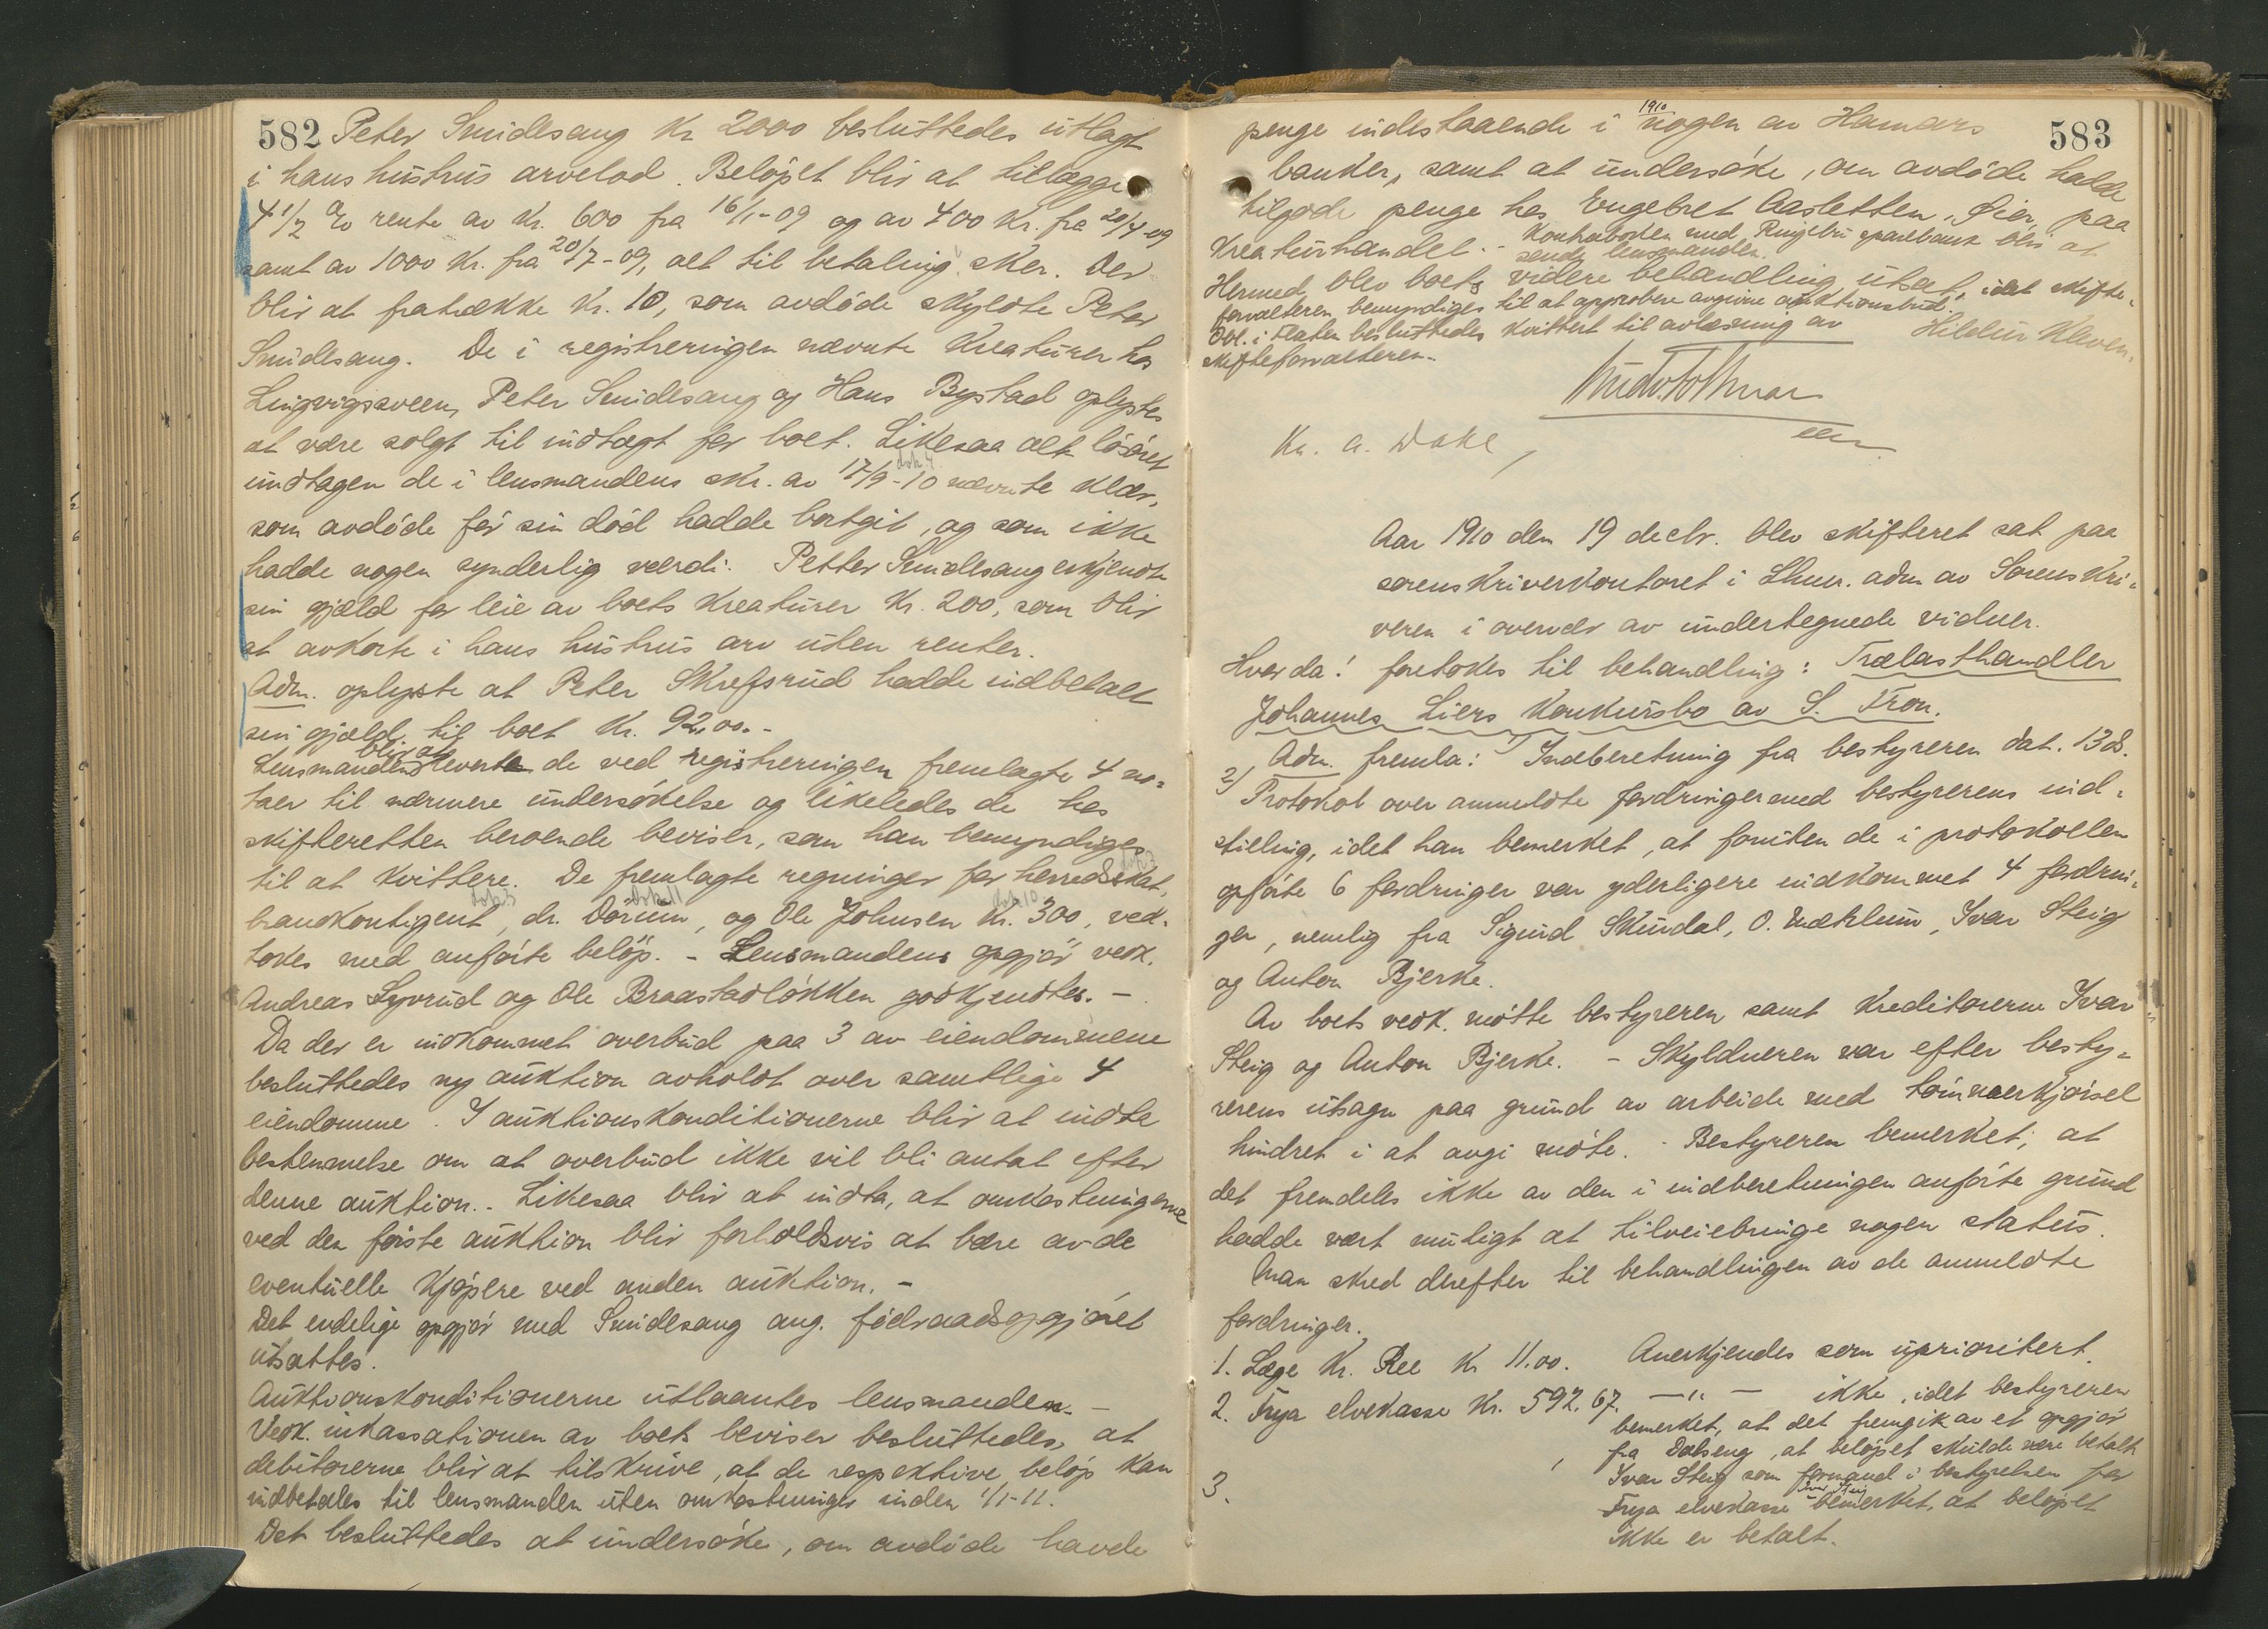 582 Peter Smidesang Kr 2000 besluttedes utlagt
i hans hustrus arvelod. Beløpet blir at tillægge
4 1/2 % rente av Kr. 600 fra 16/1-09 og av 400 Kr. fra 20/4-09
samt av 1000 Kr. fra 20/7-09, alt til betaling sker. Der
blir at fratrække Kr. 10, som avdøde skyldte Peter
Smidesang. De i registreringen nævnte Kreaturer hos
Lingvigsveen, Peter Smidesang og Hans Bystad oplystes
at være solgt til indtægt for boet. Likesaa alt løsøret
undtagen de i lensmandens skr. av 17/9-10 nævnte klær,
som avdøde før sin død hadde bortgit, og som ikke
hadde nogen synderlig værdi. Petter Smidesang erkjendte
sin gjæld for leie av boets Kreaturer Kr. 200, som blir
at avkorte i hans hustrus arv uten renter.
Adm. oplyste at Peter Skrefsrud hadde indbetalt
sin gjæld til boet Kr. 92,00.-
blir at
Lensmanden leverte de ved registreringen fremlagte 4 no-
taer til nærmere undersøkelse og likeledes de hos
skifteretten beroende beviser, som han bemyndiges
til at kvittere. De fremlagte regninger for herredsskat,
brandkontigent, dr. Dørum, og Ole Johnsen Kr. 300, ved-
tokes med anførte beløp. - Lensmandens opgjør vedk.
Andreas Lyvrud og Ole Braastadløkken godkjendtes. -
Da der er indkommet overbud paa 3 av eiendommene
besluttedes ny auktion avholdt over samtlige 4
eiendomme. I auktionskonditionerne blir at indta
bestemmelse om at overbud ikke vil bli antat efter
denne auktion. - Likesaa blir at indta, at omkostningerne
ved den første auktion blir forholdsvis at bære av de
eventuelle kjøpere ved anden auktion. -
Det endelige opgjør med Smidesang ang. födraadsopgjøret
utsattes.
Auktionskonditionerne utlaantes lensmanden. -
Vedk. inkassationen av boets beviser besluttedes, at
debitorerne blir at tilskrive, at de respektive beløp kan
indbetales til lensmanden uten omkostninger inden 1/1-11.
Det besluttedes at undersøke, om avdøde havde
1910
583
penge indestaaende i nogen av Hamars
banker, samt at undersøke, om avdøde hadde
tilgode penge hos Engebret Aasletten, Øier, paa
Kreaturhandel. - Kontraboken med Ringebu sparebank blir at
sende lensmanden.
Hermed blev boets videre behandling utsat, idet skifte-
forvalteren bemyndiges til at approbere avgivne auktionsbud.
Obl. i Flaten besluttedes kvittert til avlæsning av
skifteforvalteren.
Hildur Kleven.
Kr. A. Dahl,
Aar 1910 den 19 decbr. blev skifteret sat paa
sorenskriverkontoret i Lhmr. adm av Sorenskri-
veren i overvær av undertegnede vidner.
Hvorda! foretokes til behandling: Trælasthandler
Johannes Liers Konkursbo av S. Fron.
Adm. fremla: 1) Indberetning fra bestyreren dat. 13 ds.
2) Protokol over anmeldte fordringer med bestyrerens ind-
stilling, idet han bemerket, at foruten de i protokollen
opførte 6 fordringer var yderligere indkommet 4 fordrin-
ger, nemlig fra Sigurd Skurdal, O. Mæhlum, Ivar Steig
og Anton Bjerke.
Av boets vedk. møtte bestyreren samt Kreditorerne Ivar
Steig og Anton Bjerke. - Skyldneren var efter besty-
rerens utsagn paa grund av arbeide med tømmerkjørsel
hindret i at avgi møte. - Bestyreren bemerket, at
det fremdeles ikke av den i indberetningen anførte grund
hadde vært muligt at tilveiebringe nogen status.
Man skred derefter til behandlingen av de anmeldte
fordringer.
1. Læge Kr. Ree Kr 11.00. Anerkjendes som uprioritert.
2. Frya elvekasse Kr. 592.67. —"— ikke, idet bestyreren
bemerket, at det fremgik av et opgjør
fra Dalseng, at beløpet skulde være betalt
3. Ivar Steig som formand i bestyrelsen for
Frya elvekasse bemerket, at beløpet
ikke er betalt.